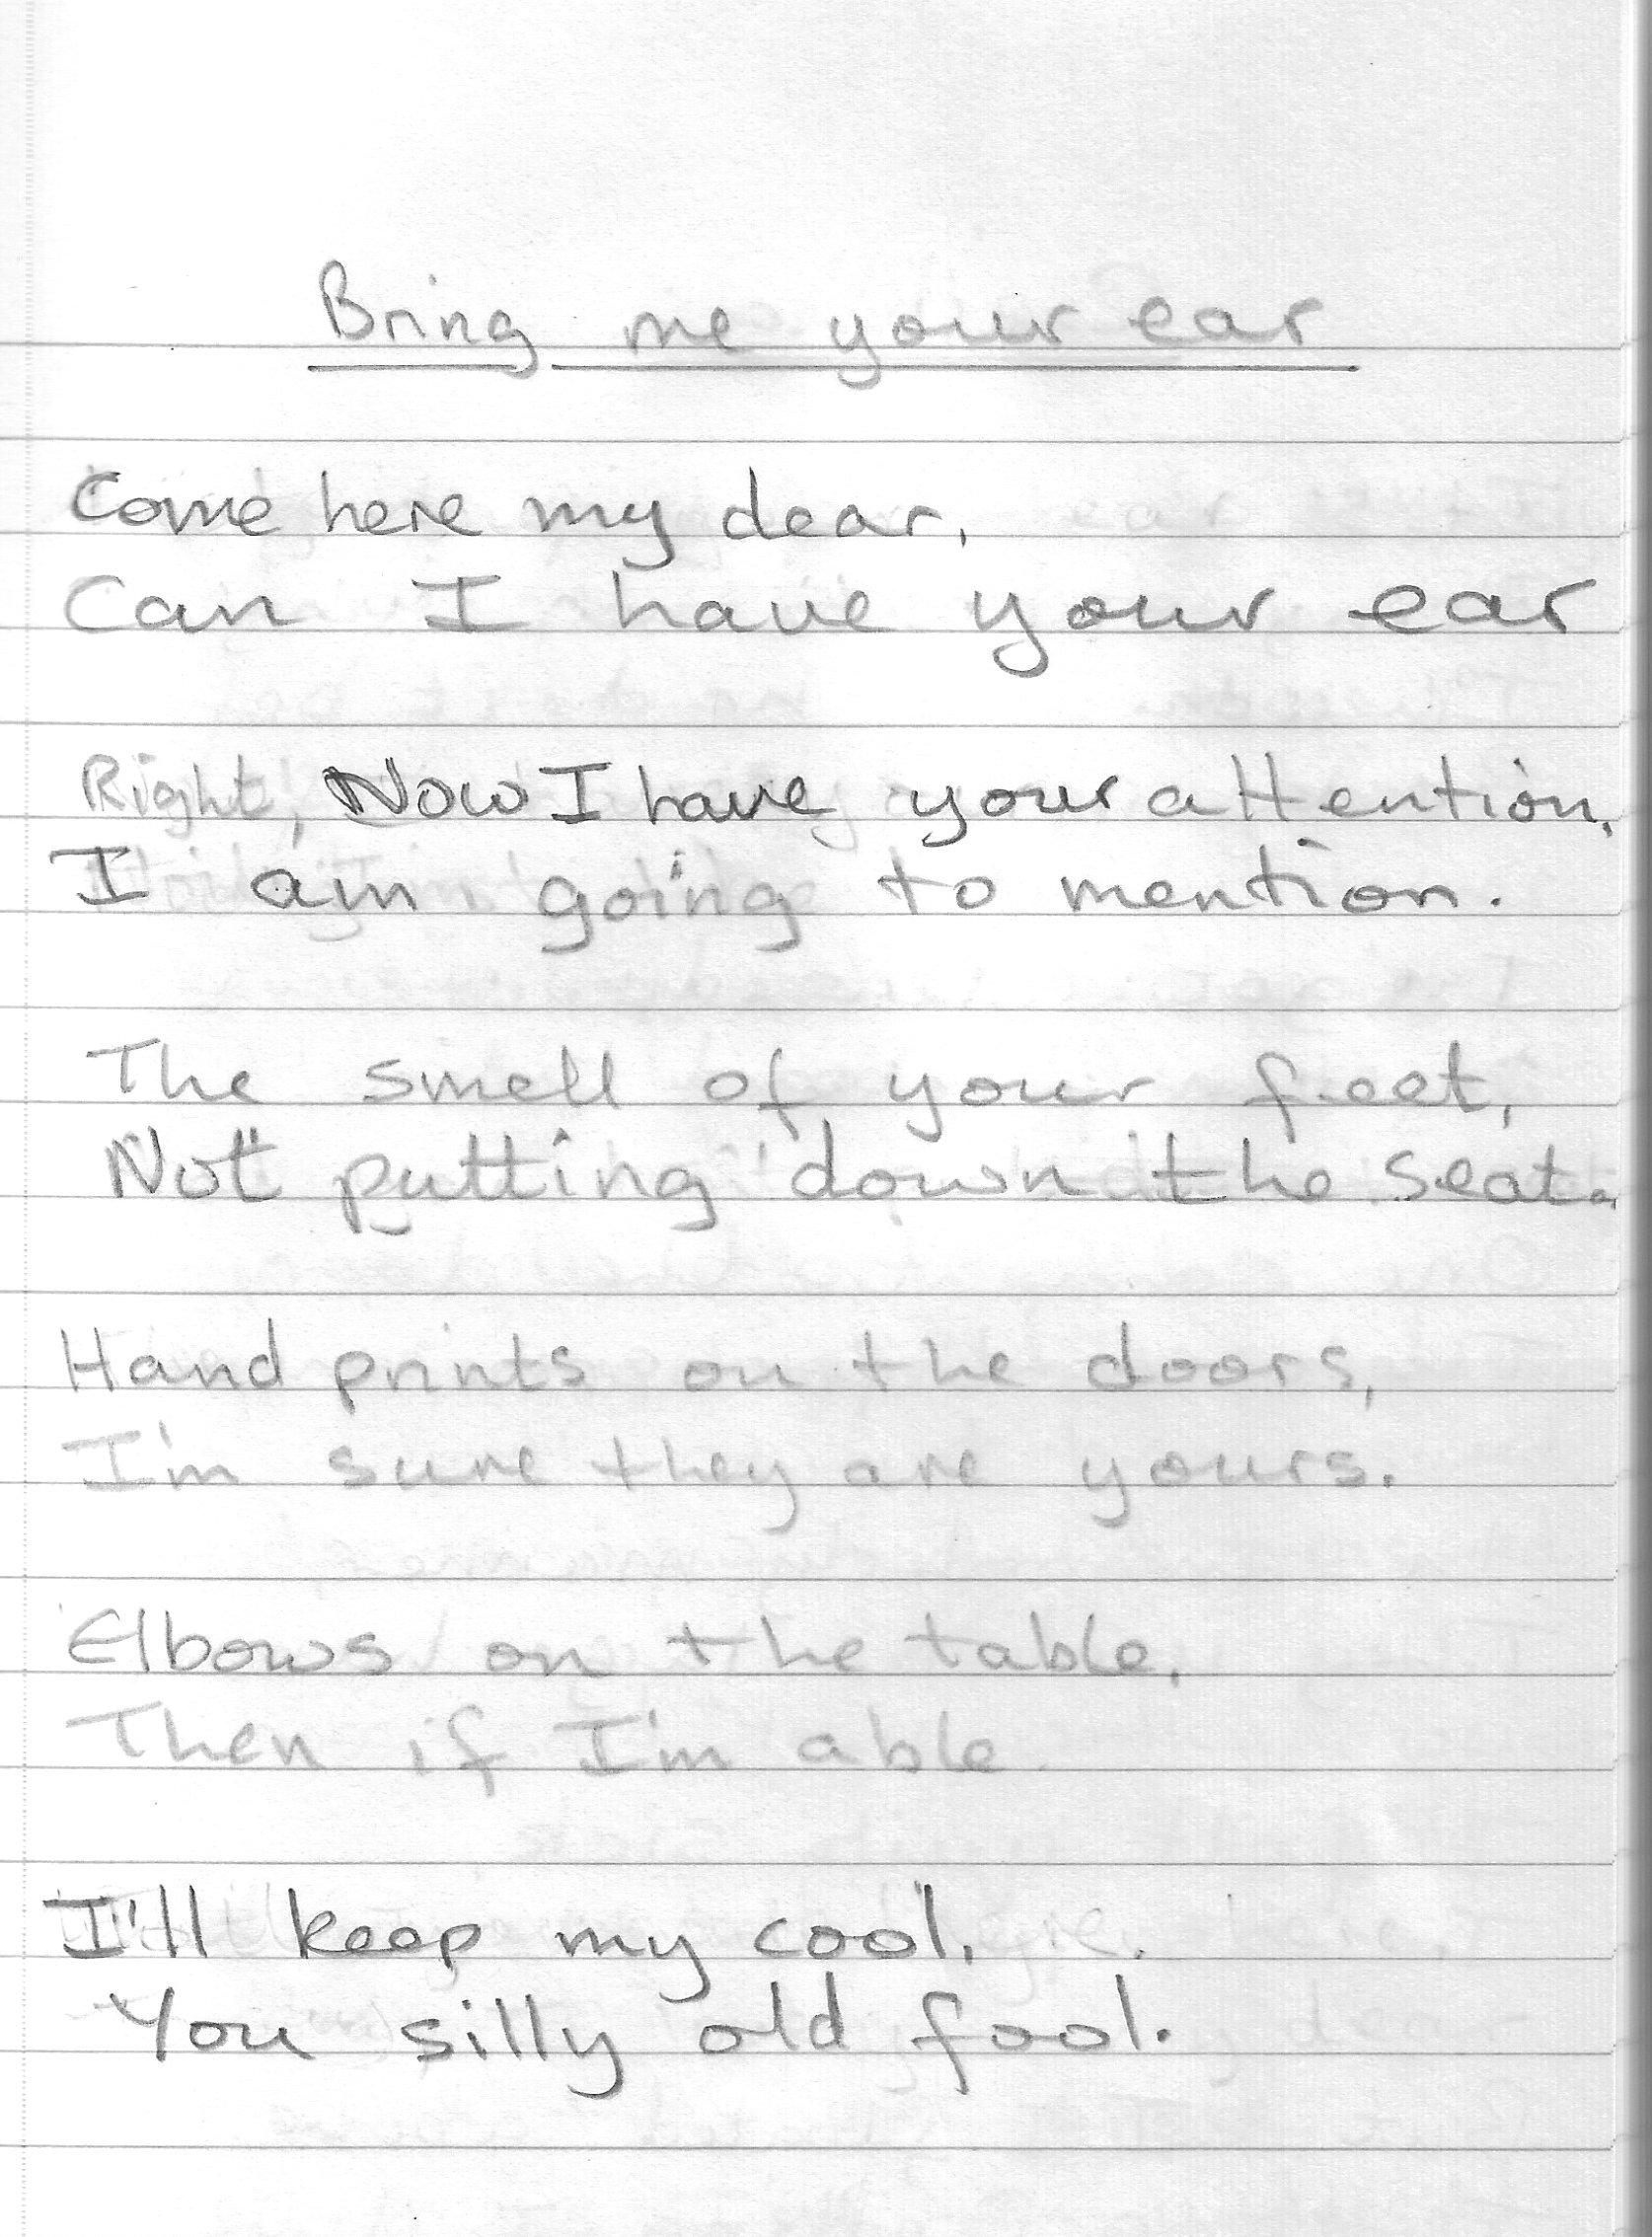 Bring me your ear
Come here my dear,
Can I have your ear
Right, Now I have your attention,
I am going to mention.
The smell of your feet,
Not putting down the seat.
Hand prints on the doors,
I'm sure they are yours.
Elbows on the table,
Then if I'm able.
I'll keep my cool,
You silly old fool.